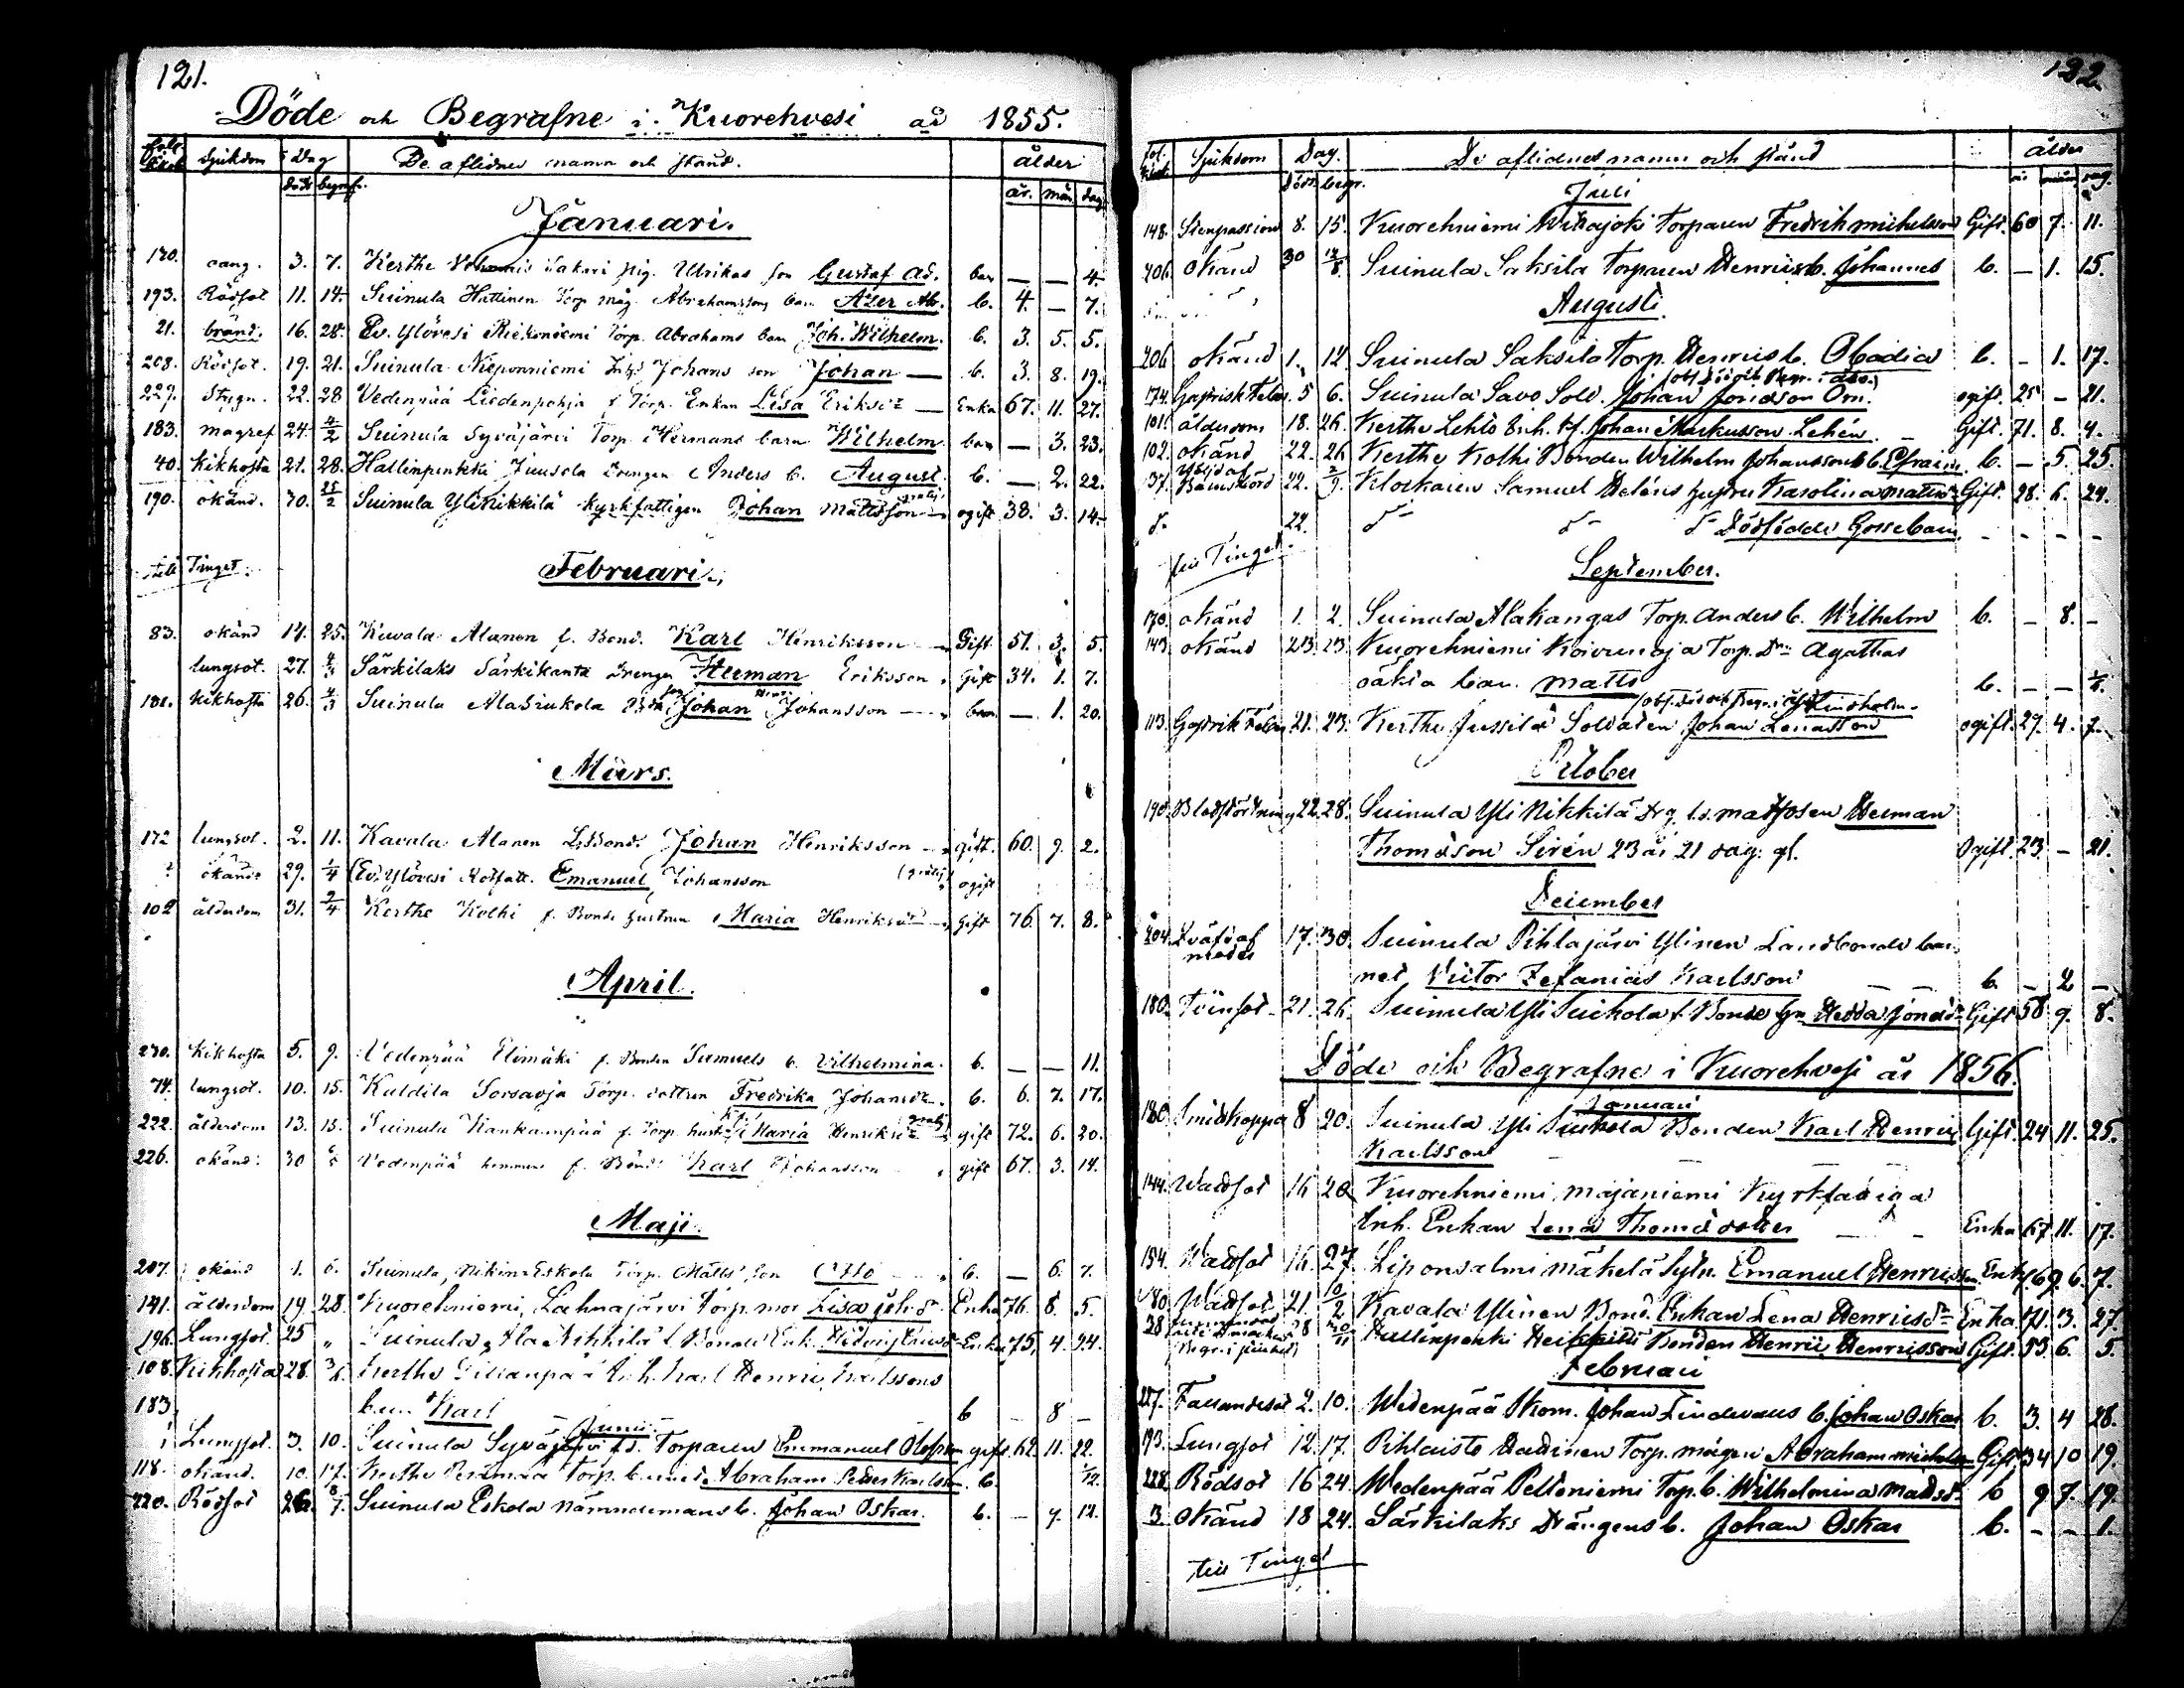 121.
Döde och Begrafne i Kuorehvesi år 1855.
Sjukdom Dag De aflidnes namn och stånd. ålder
död begrafn. år. mån. dag
Januari.
170. 3. 7. Kerthe Sakari pig. Ulrikas son Gustaf Ad. barn — — 4.
193. Rödsot 11. 14. Suinula Huttinen Torp. måg. Abrahamssons barn Azer Ab. b. 4. — 7.
21. bränd. 16. 28. Ev. Ylövesi Riekoniemi Torp. Abrahams barn Joh. Wilhelm. b. 3. 5. 5.
208. Rödsot. 19. 21. Suinula Nieponniemi Johans son Johan — b. 3. 8. 19.
227. Stygn. 22. 28 Vedenpää Liedenpohja f. Torp. Enkan Lisa Eriksdr — Enka 67. 11. 27.
183. magref 24. 4/2 Suinula Syväjärvi Torp. Hermans barn Wilhelm barn — 3. 23.
40. Kikhosta 21. 28. Hallinpenkki Juusola Drengen Anders b. August. b. — 2. 22.
190. okänd. 30. 25/2 Suinula Yli Nikkilä kyrkfattigen Johan Mattsson ogift 38. 3. 14.
till Tinget.
Februari.
83. okänd 14. 25. Kavala Alanen f. Bond. Karl Henriksson Gift 51. 3. 5.
lungsot. 27. 4/3 Särkilaks Särkikanta Drengen Herman Eriksson Gift 34. 1. 7.
181. Kikhosta 26. 4/3 Suinula Alasiukola Johan Johansson barn — 1. 20.
Mars.
172 lungsot. 2. 11. Kavala Alanen Bond. Johan Henriksson gift. 60. 9. 2.
okänd 29. 1/4 Ev. Ylövesi Rotfatt. Emanuel Johansson (gratis) ogift
102 ålderdom 31. 9/4 Kerthe Kolhi f. Bonde hustrun Maria Henriksdr Gift 76. 7. 8.
April.
230. Kikhosta 5. 9. Vedenpää Elimäki f. Bonden Samuels b. Vilhelmina. b. — — 11.
74. lungsot. 10. 15. Kuldila Sorsaoja Torp. dottren Fredrika Johansdr b. 6. 7. 17.
222. ålderdom 13. 15. Suinula Kankaanpää f. Torp. hustr. Maria Henriksdr gift 72. 6. 20.
226. okänd. 30 Vedenpää f. Bond. Karl Johansson gift 67. 3. 14.
Maji.
207. okänd 1. 6. Suinula, Torp. Matts son Otto b. — 6. 7.
141. ålderdom 19. 28. Kuorehniemi, Lahnajärvi Torp. mor Lisa Joh.dr Enka 76. 8. 5.
196. Lungsot. 25 „ Suinula, Ala Nikkilä f. Bonde Enk. Hedvig Enka 75, 4. 24.
108. Kikhosta 28. 3/6 Kerthe Karl Henric Karlssons
barn Karl b — 8 —
183.
Junii
Lungsot. 3. 10. Suinula Syväjärvi f.d. Torparen Emmanuel Olofsson gift. 62. 11. 22.
118. okänd. 10. 17. Kerthe Perämaa Torp. barnet Abraham Peter Karlsson. b. 1/12.
220. Rödsot 26. 8/7. Suinula Eskola nämndemans b. Johan Oskar. b. — 7. 12.
122
Sjukdom Dag. De aflidnes namn och stånd ålder
Död. begr.
Juli
148. Stenpassion 8. 15. Kuorehniemi Wihajoki Torparen Fredrik Michelsson Gift. 60 7. 11.
206. okänd 30 12/8. Suinula Saksila Torparen Henrics b. Johannes b. — 1. 15.
Augusti
206 okänd 1. 12. Suinula Saksila Torp. Henrics b. Obadia b. — 1. 17.
174. Gastrisk Feber. 5 6. Suinula Savo Sold. Johan Jonasson Orn. ogift. 25 — 21.
101. ålderdom 18. 26. Kerthe Lehtö Johan Markusson Lehén. Gift. 71. 8. 4.
102. okänd 22. 26 Kerthe Kolhi Bonden Wilhelm Johanssons b. Efraim. b. — 5. 25.
37. Barnsbörd 22. 2/9. Klockaren Samuel Heléns hustru Karolina Mattsdr Gift. 28. 6. 24.
22. Dödfödde Gossebarn
till Tinget.
September.
170. okänd 1. 2. Suinula Alakangas Torp. Anders b. Wilhelm b. — 8. —
143. okänd 23. 23. Kuorehniemi Koivunoja Torp. Dr Agathas
oäkta barn. Matts b. — —
113. Gastrik Feber 21. 23. Kerthe Jussila Soldaten Johan Lenasson Lindholm. ogift. 27. 4. 7.
October
190. Blodstörtning 22. 28. Suinula Yli Nikkilä Drg. Herman
Thomasson Sirén 23 år 21 dag. gl. Ogift. 23. — 21.
December
204. Qväfd af moder 17. 30. Suinula Pihlajärvi Ylinen Landbonde bar-
net Victor Zefanias Karlsson b. — 2 —
180. Tvinsot 21. 26. Suinula Yli Siukola f. Bonde Hedda Jonasdr Gift 58 9. 8.
Döde och Begrafne i Kuorehvesi år 1856.
Januari
180. Smidkoppa 8 20. Suinula Yli Siukola Bonden Karl Henric Gift. 24 11. 25.
Karlsson
144. Wadsot 16 20 Kuorehniemi Majaniemi Kyrkfattiga
Inh. Enkan Lena Thomasdotter Enka 67 11. 17.
154. Wadsot 16. 27 Liponsalmi Mäkelä Sytn. Emanuel Henricsson Enk. 69 6. 7.
80. Wadsot 21. 10/2 Kavala Ylinen Bond. Enkan Lena Henricsdr Enka 71. 3. 27.
28 8 Hallinpenki Heikkilä Bonden Henric Henricsson Gift. 53. 6. 5.
Februari
227. Fallandesot 2. 10. Wedenpää Skom. Johan Lindevaus b. Johan Oskar b. 3. 4 28.
193. Lungsot 12. 17. Pihlaisto Hattinen Torp. mågen Abraham Michelsson Gift 34 10 19.
228. Rödsot 16 24. Wedenpää Peltoniemi Torp. b. Wilhelmina Mattsdr b 9 7. 19.
3. okänd 18 24. Särkilaks Drängens b. Johan Oskar b. — — 1.
till Tinget